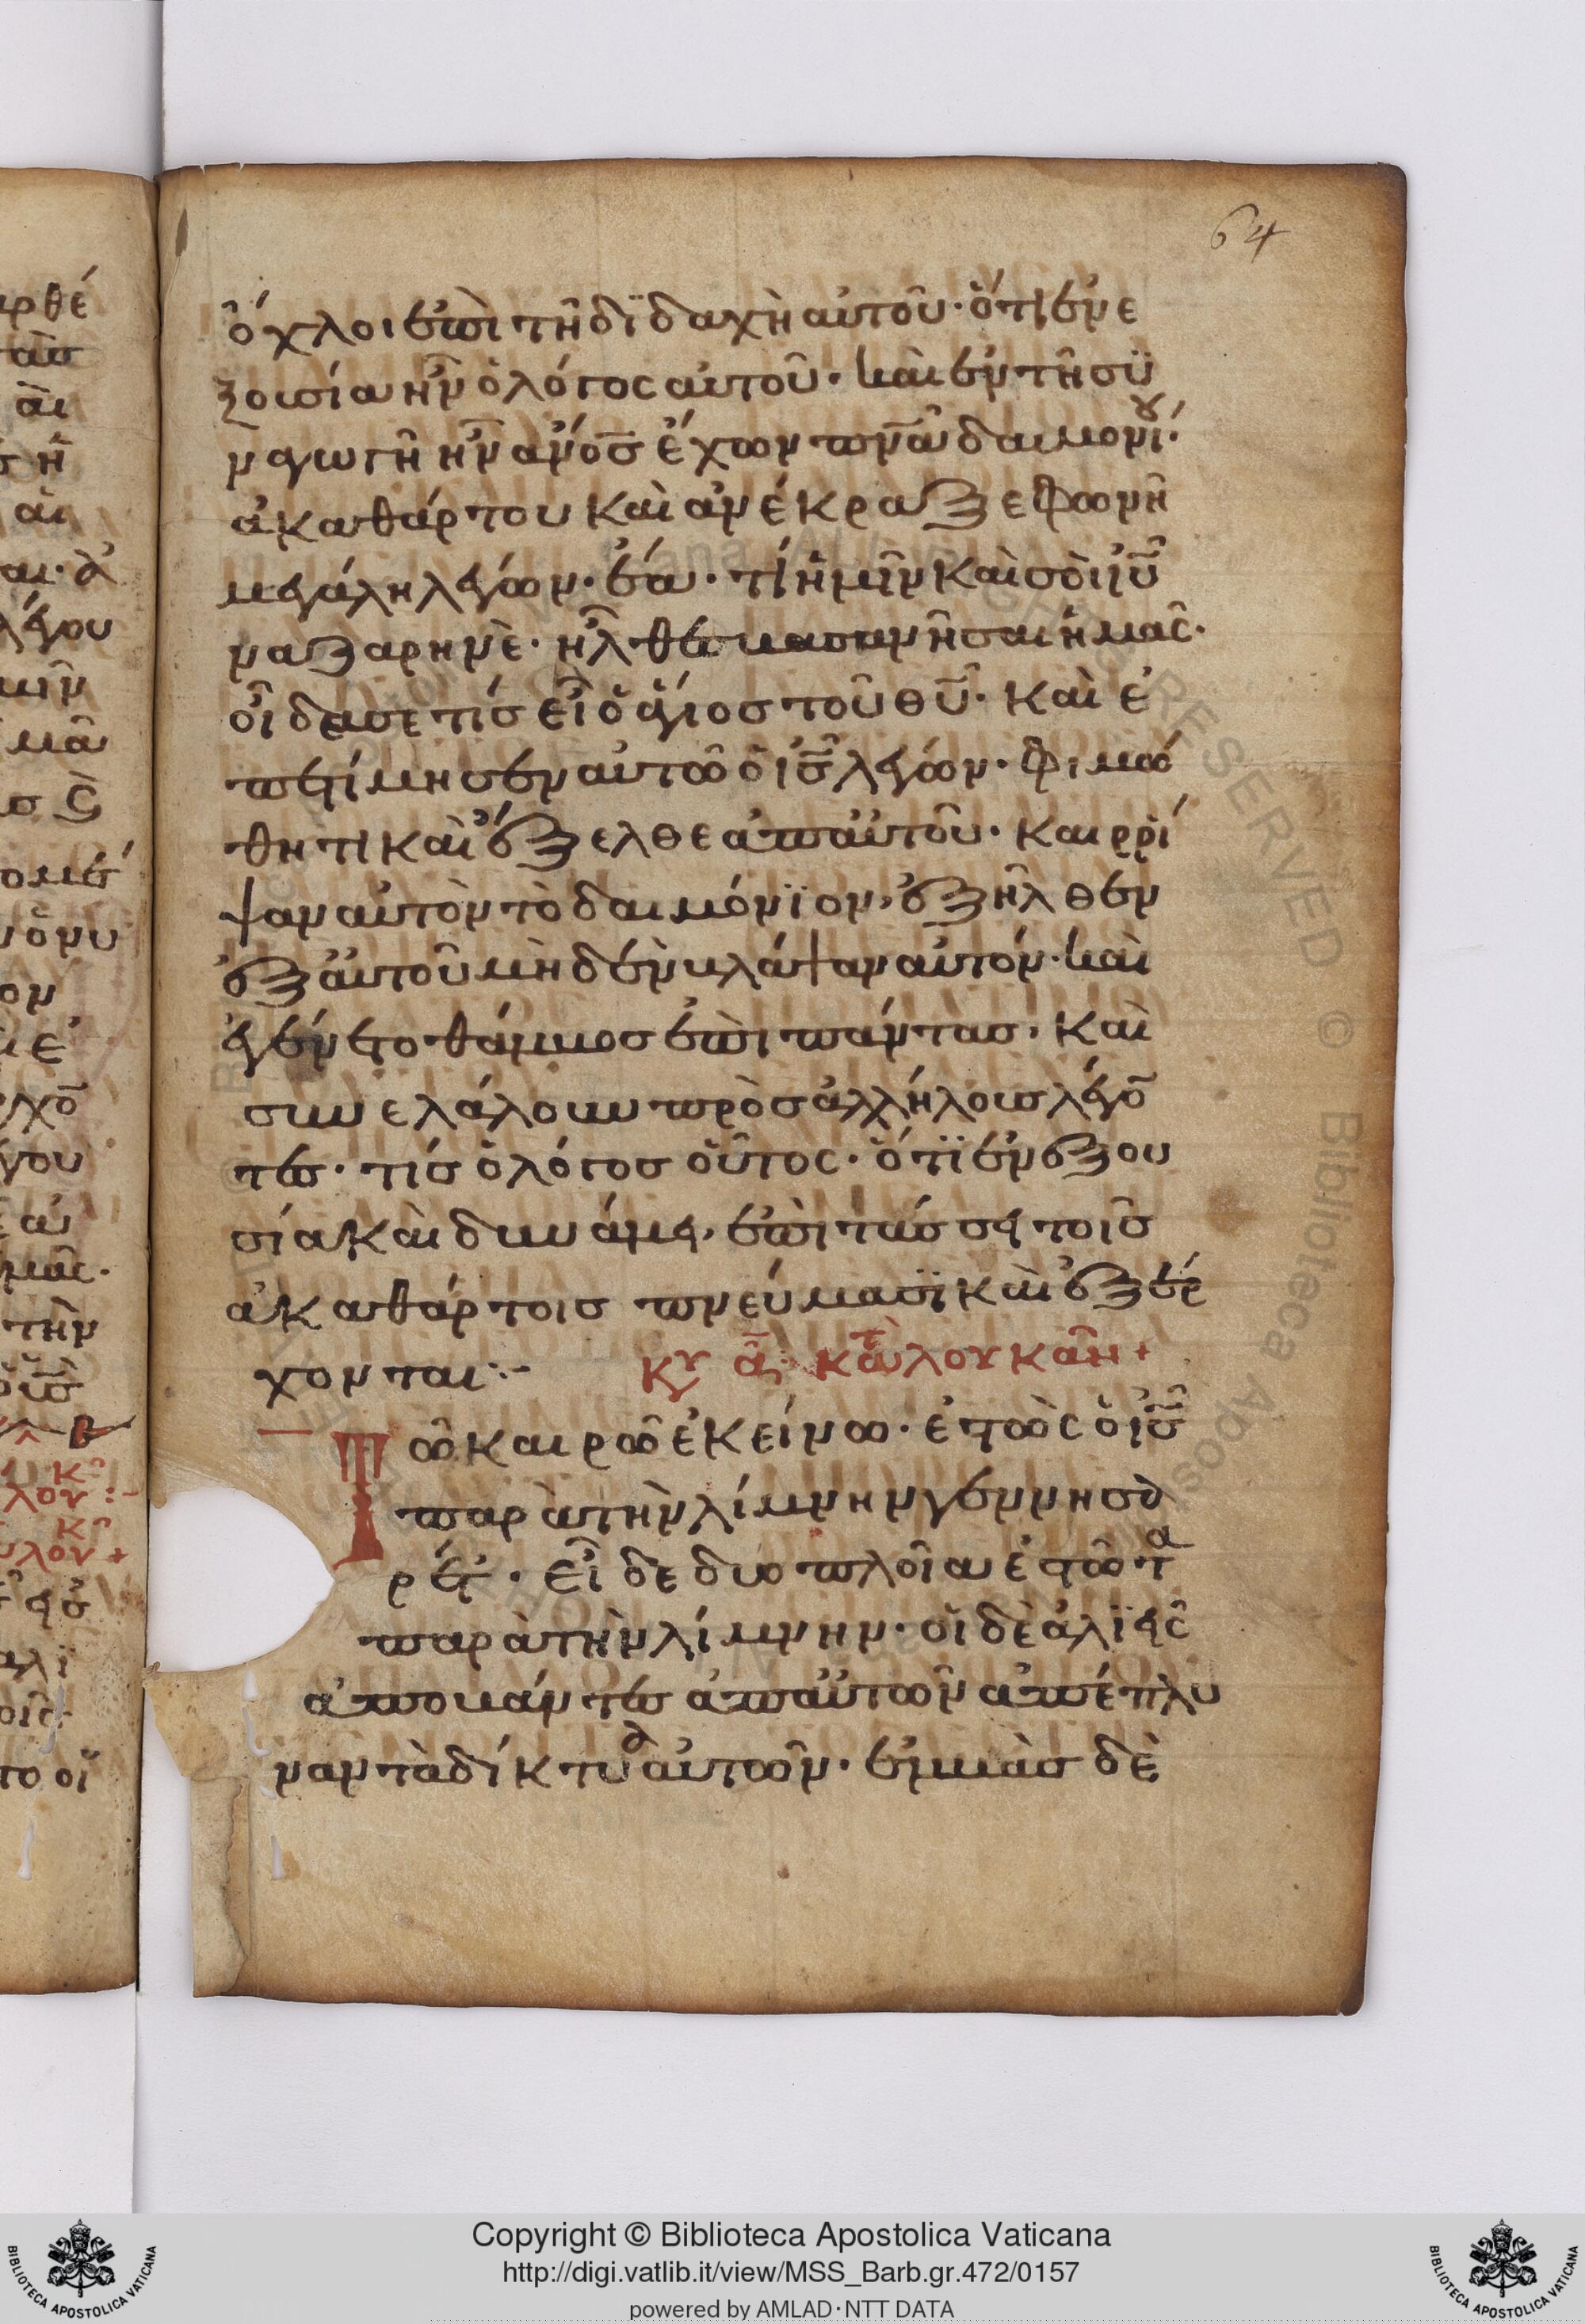 64
ὄχλοι ἐπὶ τῆ διδαχὴ αὐτοῦ· ὅτι ἐν ε
ξουσία ἦν ὁ λόγος αὐτοῦ· καὶ ἐν τῆ συ
ναγωγῆ ἦν ἄνος ἔχων πνᾶ δαιμονίου·
ἀκαθάρτου καὶ ἀνέκραξε φωνῆ
μεγάλη λέγων· ἔα· τί ἡμῖν καὶ σὸι ἰῦ
ναζαρηνὲ· ἦλθες απολέσαι ἡμᾶς·
οἶδα σε τίς εἶ ὁ ἅγιος τοῦ θῦ· καὶ ἐ
πετίμησεν αὐτῶ ὁ ἰς λέγων· φιμώ
θητι καὶ ἔξελθε ἀπ αὐτοῦ· καὶ ρρί
ψαν αὐτὸν τὸ δαιμόνιον, ἐξῆλθεν
ἐξ αὐτοῦ μὴδὲν βλάψαν αὐτόν· καὶ
ἐγένετο θάμβος ἐπὶ πάντας, καὶ
συνελάλουν πρὸς ἀλλήλους λέγο
τες· τίς ὁ λόγος οὗτος· ὅτι ἐν ἐξου
σία καὶ δυνάμει, ἐπιτάσσει τοῖς
ἀκαθάρτοις πνεύμασι καὶ ἐξέρ
χονται:-
Κυ α· κατὰ λουκᾶν +
Τῶ καιρῶ ἐκείνω· ἑστὼς ὁ ἰς
παρὰ τὴν λίμνην γεννησα
ρέτ· εἶδε δυο πλοῖα ἑστῶτα
παρὰ τὴν λίμνην· οἱ δὲ ἁλιεῖς
ἀποβάντες ἀπ αὐτῶν ἀπέπλυ
ναν τὰ δίκτυα αὐτῶν· ἐμβὰς δὲ
Copyright © Biblioteca Apostolica Vaticana
http://digi.vatlib.it/view/MSS_Barb.gr.472/0157
powered by AMLAD·NTT DATA
BIBLIOTECA APOSTOLICA VATICANA
BIBLIOTECA APOSTOLICA VATICANA